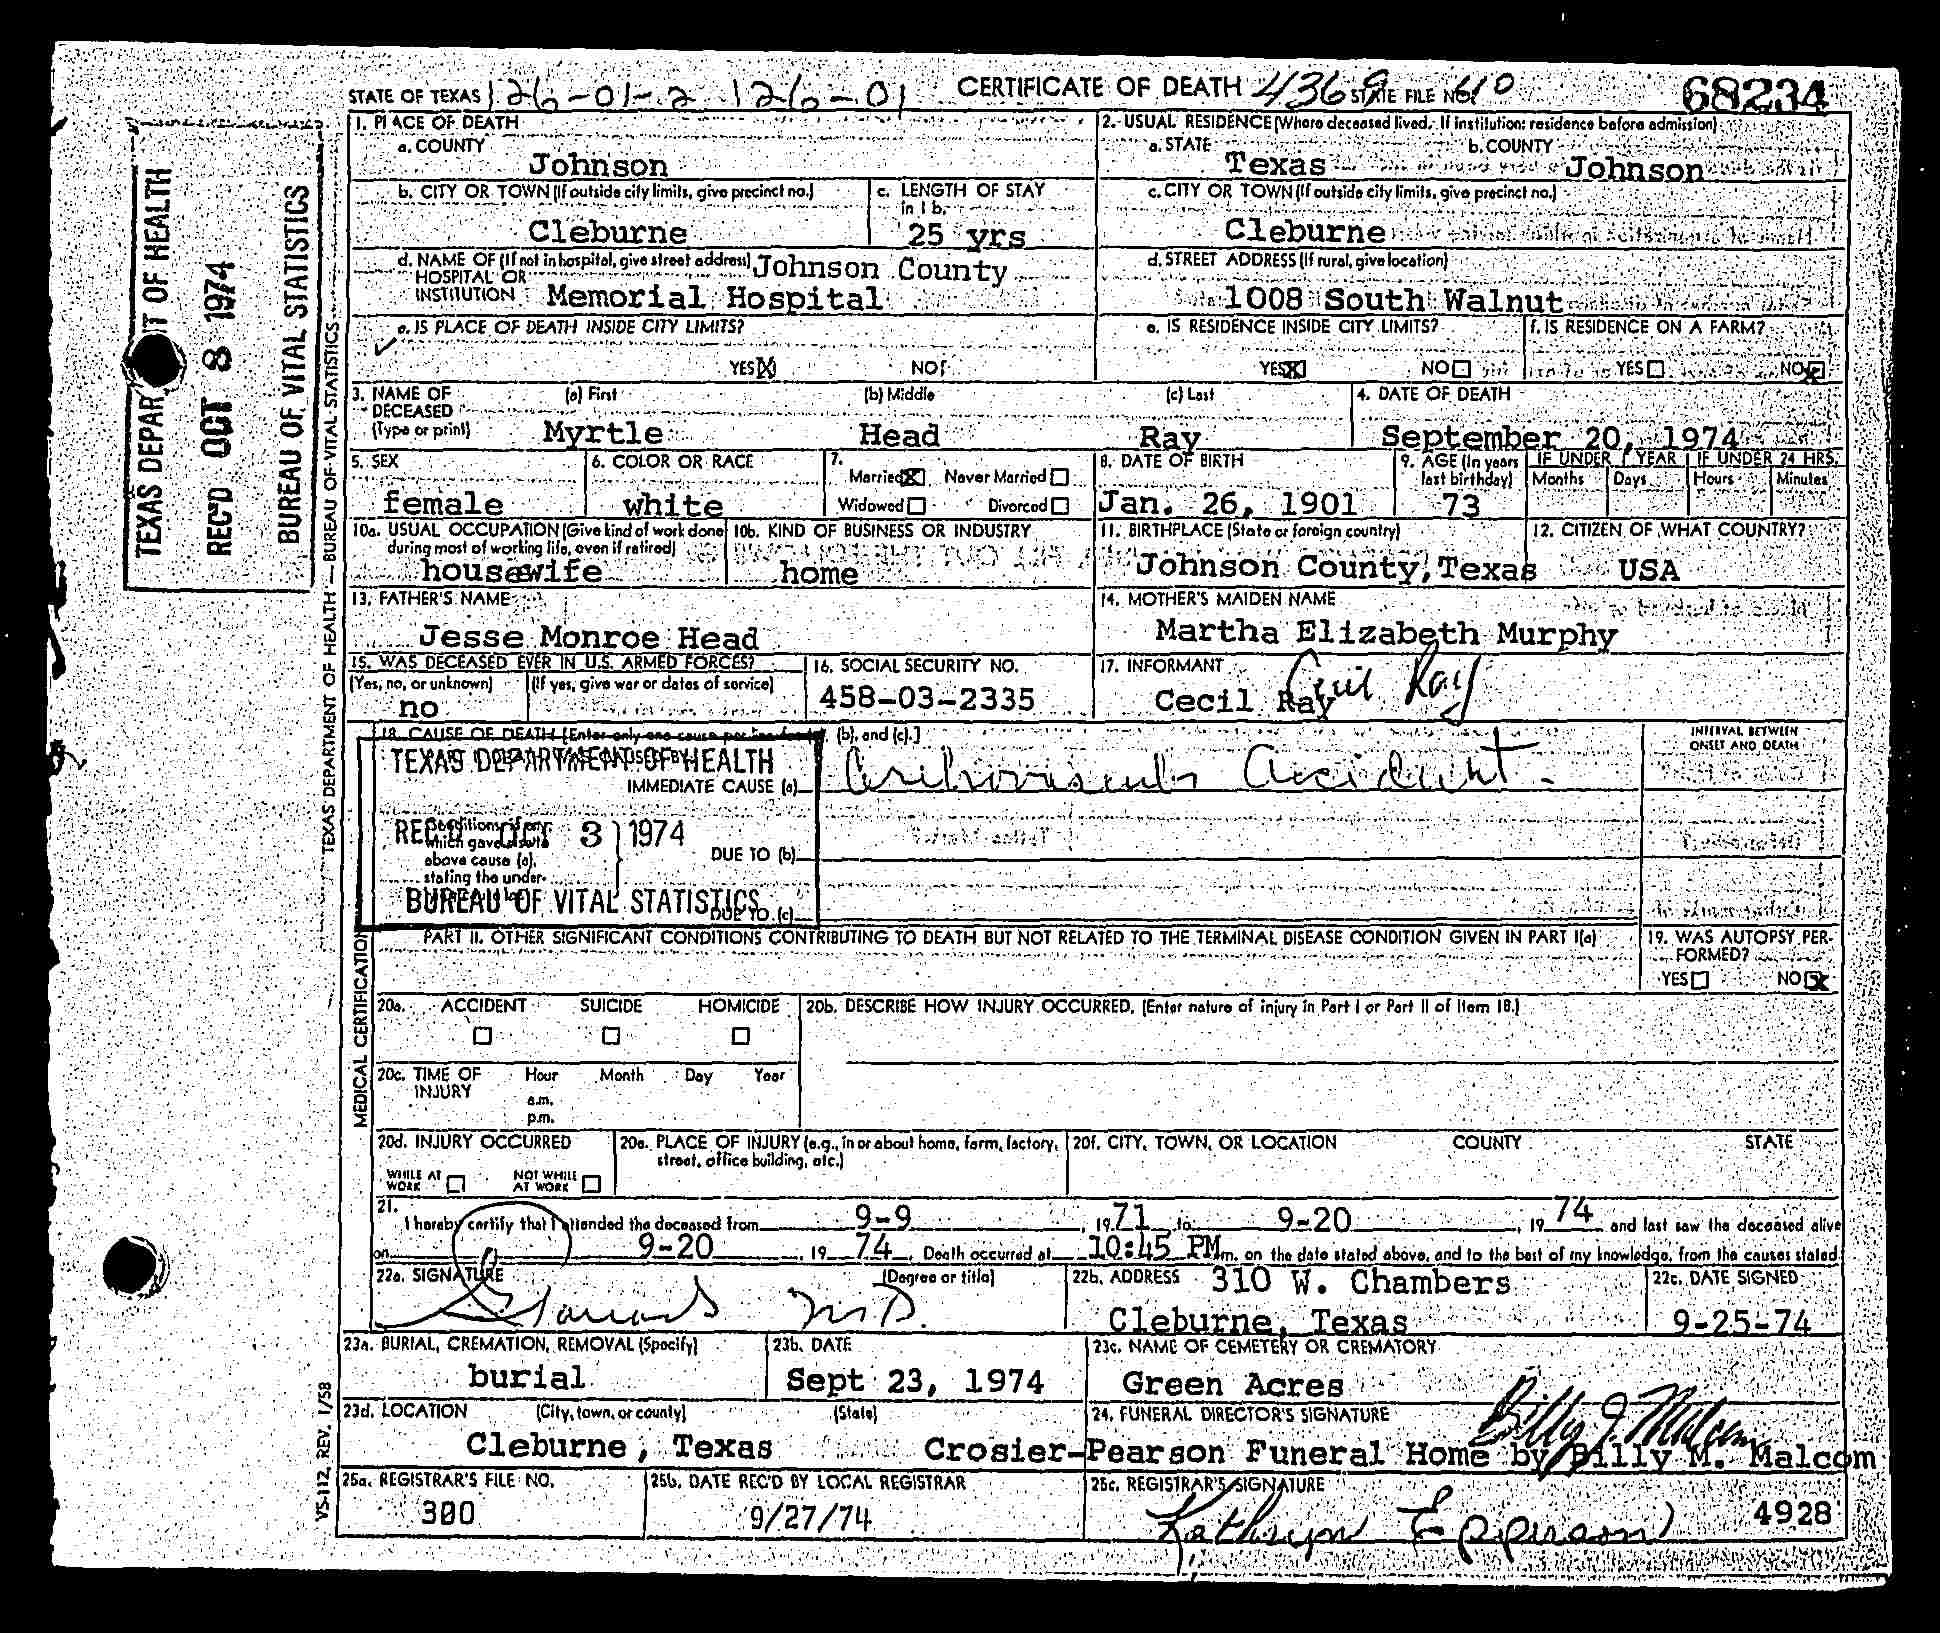 STATE OF TEXAS 126-01-2 126-01 CERTIFICATE OF DEATH 4369 STATE FILE NO. 10 68234
1. PLACE OF DEATH
a. COUNTY
Johnson
2. USUAL RESIDENCE (Where deceased lived. If institution: residence before admission)
a. STATE Texas b. COUNTY Johnson
b. CITY OR TOWN (If outside city limits, give precinct no.)
Cleburne
c. LENGTH OF STAY
in 1 b.
25 yrs
c. CITY OR TOWN (If outside city limits, give precinct no.)
Cleburne
d. NAME OF (If not in hospital, give street address) Johnson County
HOSPITAL OR
INSTITUTION Memorial Hospital
d. STREET ADDRESS (If rural, give location)
1008 South Walnut
e. IS PLACE OF DEATH INSIDE CITY LIMITS?
YES X NO
e. IS RESIDENCE INSIDE CITY LIMITS?
YES X NO
f. IS RESIDENCE ON A FARM?
YES NO X
3. NAME OF
DECEASED
(Type or print)
(a) First (b) Middle (c) Last
Myrtle Head Ray
4. DATE OF DEATH
September 20, 1974
5. SEX
female
6. COLOR OR RACE
white
7.
Married X Never Married
Widowed Divorced
8. DATE OF BIRTH
Jan. 26, 1901
9. AGE (In years
last birthday)
73
IF UNDER 1 YEAR IF UNDER 24 HRS.
Months Days Hours Minutes
10a. USUAL OCCUPATION (Give kind of work done
during most of working life, even if retired)
housewife
10b. KIND OF BUSINESS OR INDUSTRY
home
11. BIRTHPLACE (State or foreign country)
Johnson County, Texas
12. CITIZEN OF WHAT COUNTRY?
USA
13. FATHER'S NAME
Jesse Monroe Head
14. MOTHER'S MAIDEN NAME
Martha Elizabeth Murphy
15. WAS DECEASED EVER IN U.S. ARMED FORCES?
(Yes, no, or unknown) (If yes, give war or dates of service)
no
16. SOCIAL SECURITY NO.
458-03-2335
17. INFORMANT
Cecil Ray Cecil Ray
18. CAUSE OF DEATH [Enter only one cause per line for (a), (b), and (c).]
INTERVAL BETWEEN
ONSET AND DEATH
IMMEDIATE CAUSE (a) Cerebrovascular Accident
Conditions, if any,
which gave rise to
above cause (a),
stating the under-
DUE TO (b)
DUE TO (c)
TEXAS DEPARTMENT OF HEALTH
REC'D OCT 3 1974
BUREAU OF VITAL STATISTICS
PART II. OTHER SIGNIFICANT CONDITIONS CONTRIBUTING TO DEATH BUT NOT RELATED TO THE TERMINAL DISEASE CONDITION GIVEN IN PART I(a)
19. WAS AUTOPSY PER-
FORMED?
YES NO X
20a. ACCIDENT SUICIDE HOMICIDE
20b. DESCRIBE HOW INJURY OCCURRED. (Enter nature of injury in Part I or Part II of Item 18.)
20c. TIME OF
INJURY
Hour Month Day Year
a.m.
p.m.
20d. INJURY OCCURRED
WHILE AT
WORK
NOT WHILE
AT WORK
20e. PLACE OF INJURY (e.g., in or about home, farm, factory,
street, office building, etc.)
20f. CITY, TOWN, OR LOCATION COUNTY STATE
21.
I hereby certify that I attended the deceased from 9-9, 1971 to 9-20, 1974 and last saw the deceased alive
on 9-20, 19 74. Death occurred at 10:45 PM m. on the date stated above, and to the best of my knowledge, from the causes stated.
22a. SIGNATURE (Degree or title)
M.D.
22b. ADDRESS 310 W. Chambers
Cleburne, Texas
22c. DATE SIGNED
9-25-74
23a. BURIAL, CREMATION, REMOVAL (Specify)
burial
23b. DATE
Sept 23, 1974
23c. NAME OF CEMETERY OR CREMATORY
Green Acres
23d. LOCATION (City, town, or county) (State)
Cleburne, Texas
24. FUNERAL DIRECTOR'S SIGNATURE
Billy J. Malcom
Crosier-Pearson Funeral Home by Billy M. Malcom
25a. REGISTRAR'S FILE NO.
300
25b. DATE REC'D BY LOCAL REGISTRAR
9/27/74
25c. REGISTRAR'S SIGNATURE
Kathryn Epperson 4928
TEXAS DEPARTMENT OF HEALTH
REC'D OCT 8 1974
BUREAU OF VITAL STATISTICS
TEXAS DEPARTMENT OF HEALTH — BUREAU OF VITAL STATISTICS
MEDICAL CERTIFICATION
VS-112, REV. 1/58